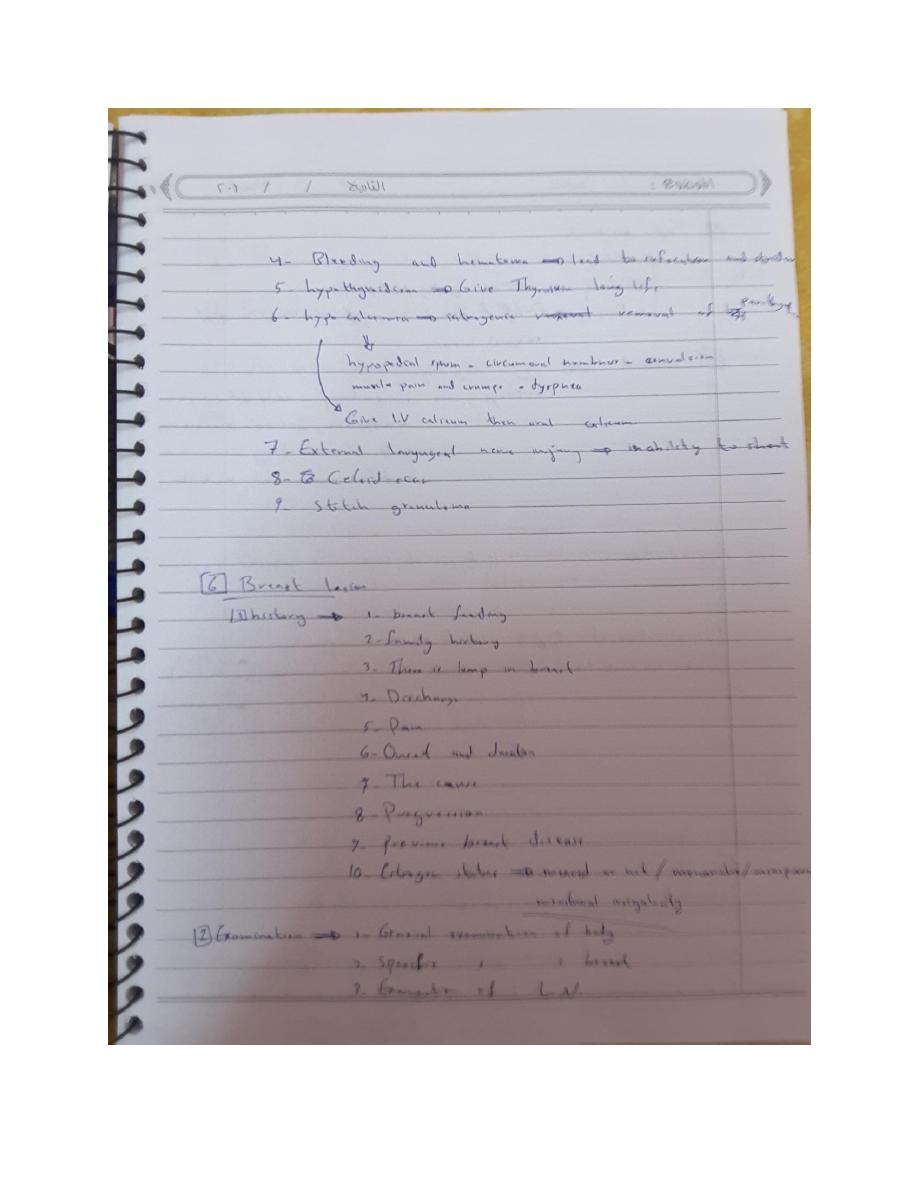 الموضوع :
التاريخ / / ٢٠١
4- Bleeding and hematoma ⇒ lead to sufocation and
5- hypothyroidism ⇒ Give Thyroxin long life
6- hypo calcemia ⇒ iatrogenic removal of
hypopedal spasm - circumoral numbness - convulsion
muscle pain and cramps - dyspnea
Give I.V calcium then oral calcium
7- External laryngeal nerve injury ⇒ inability to shout
8- Celoid scar
9- Stitch granuloma
[6] Breast lesion
[1] history ⇒ 1- breast feeding
2- family history
3- There is lump in breast
4- Discharge
5- Pain
6- Onset and duration
7- The cause
8- Progression
9- Previous breast disease
10- Estrogen status ⇒ married or not /
menstrual
[2] Examination ⇒ 1- General examination of body
2- Specific , , breast
3- Examination of L.N